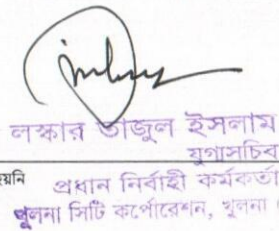 লস্কার তাজুল ইসলাম
যুগ্মসচিব
য়নি
প্রধান নির্বাহী কর্মকর্তা
খুলনা সিটি কর্পোরেশন, খুলনা।